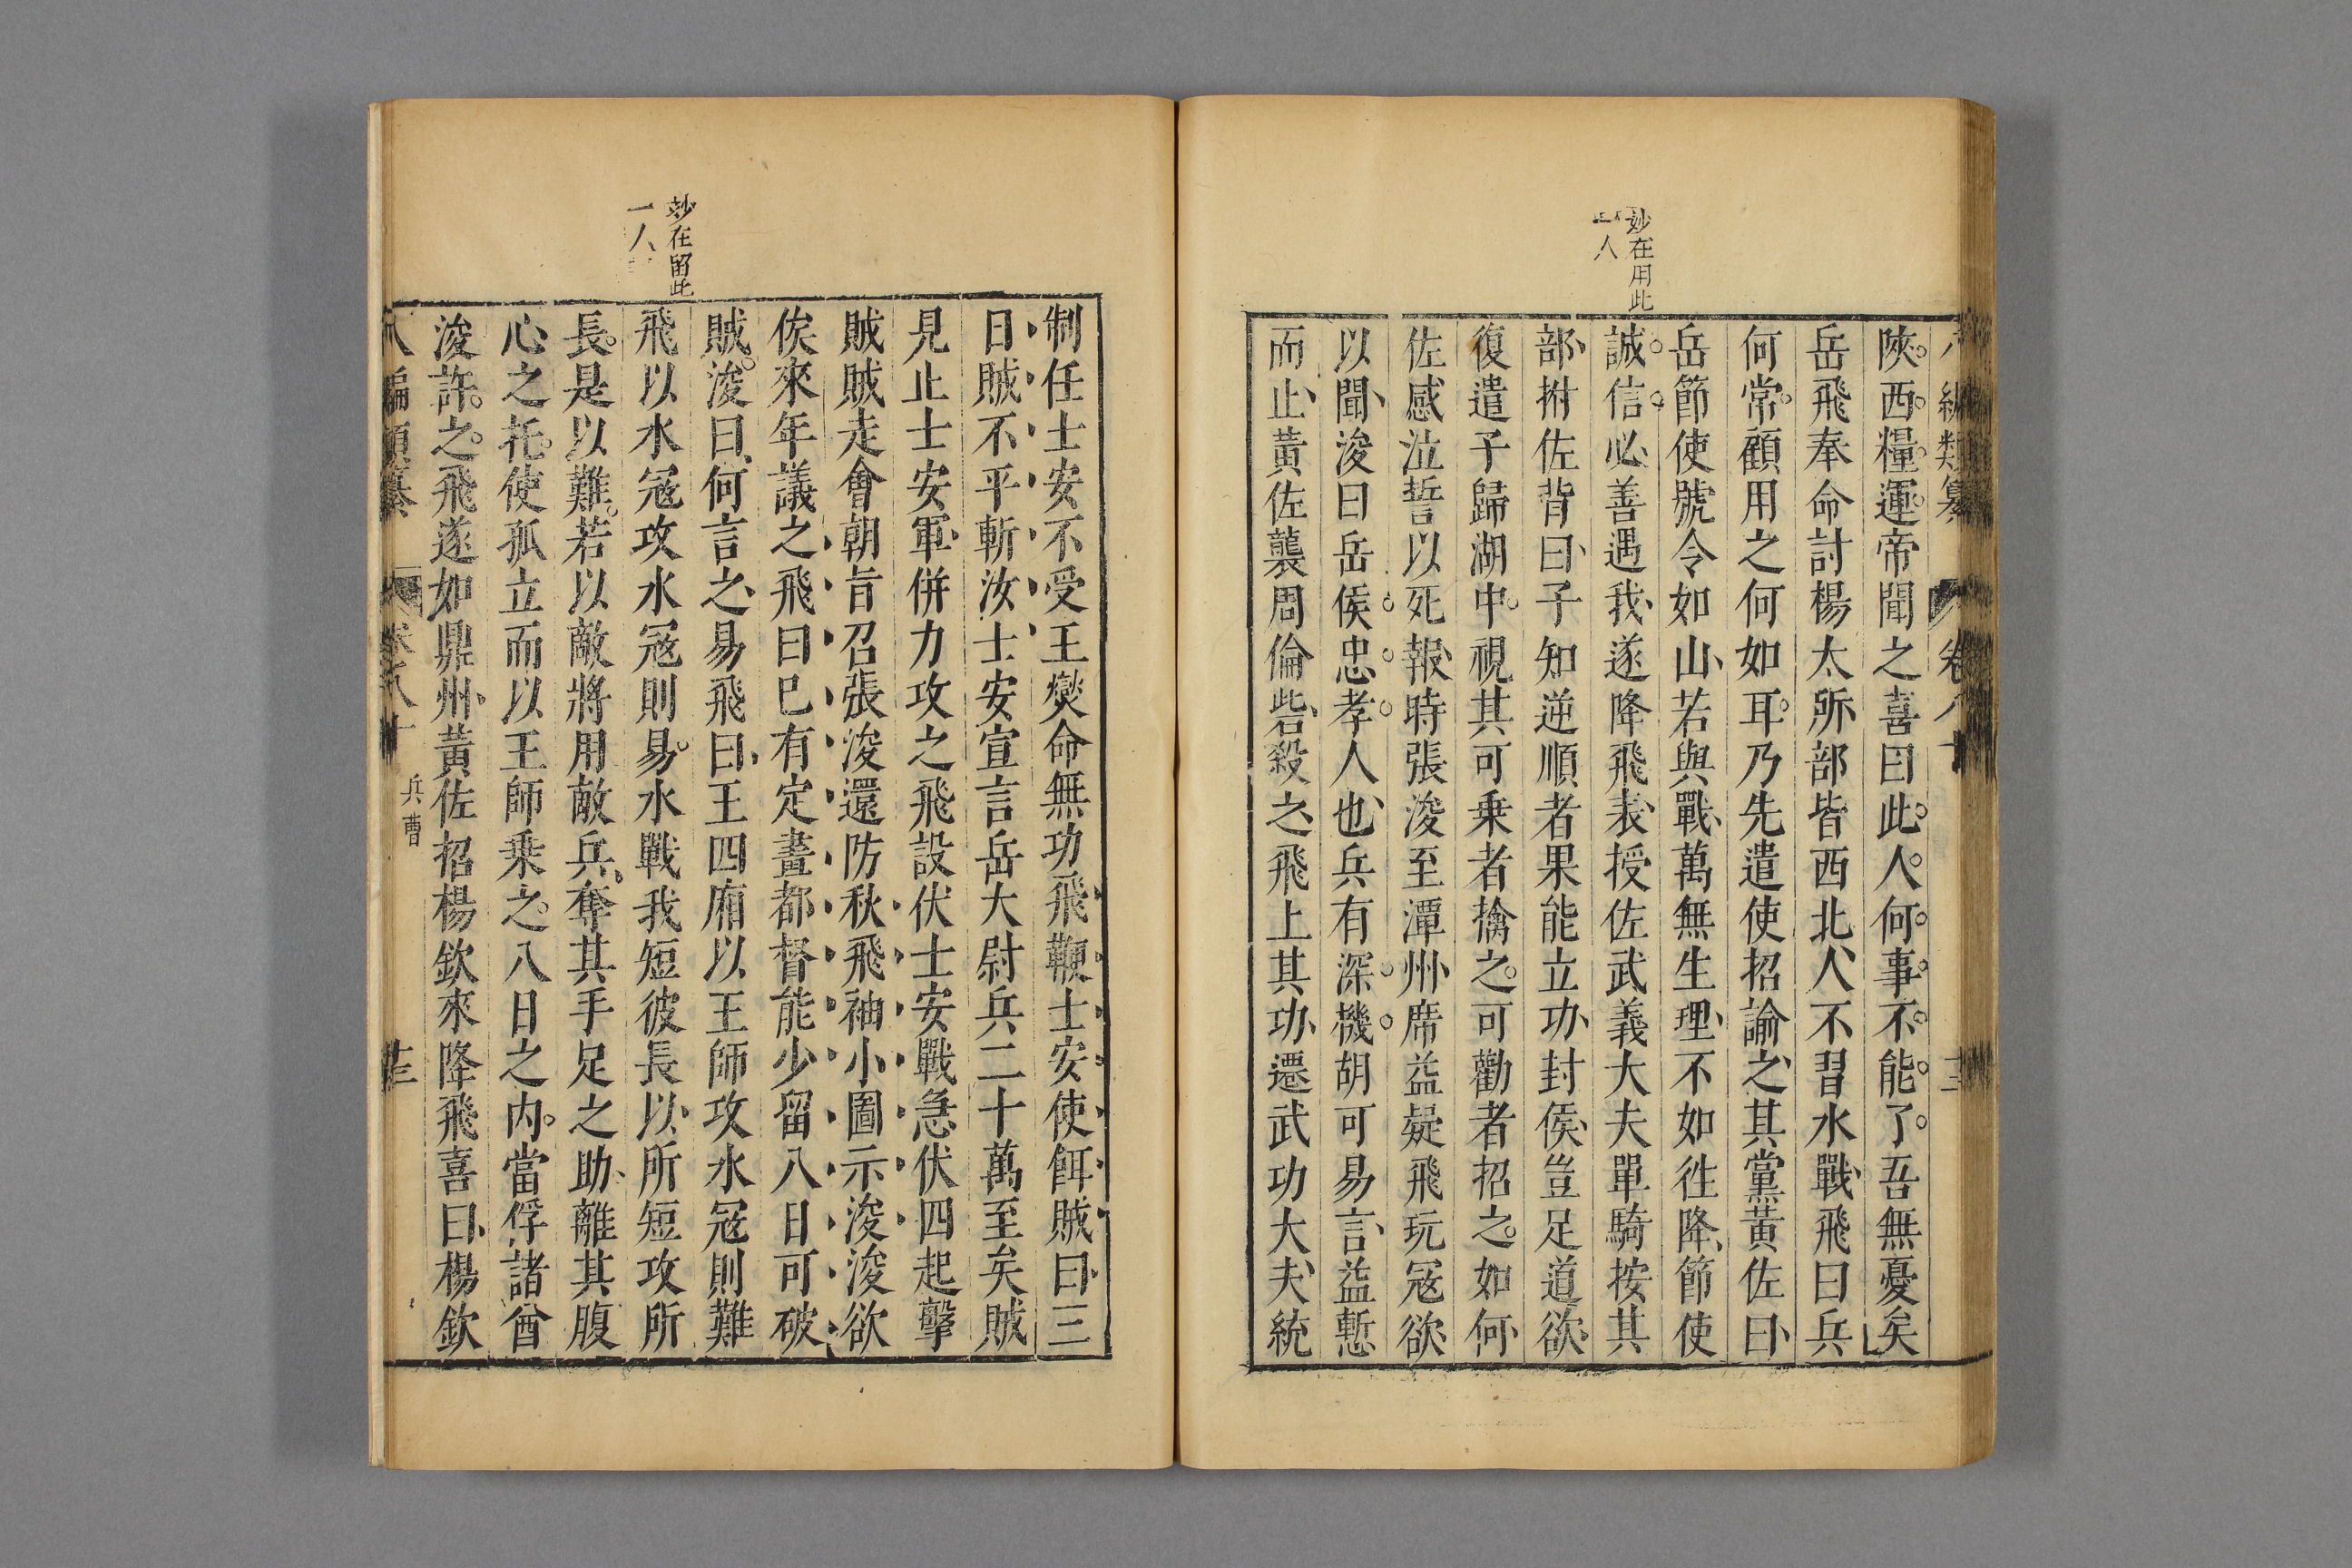 妙在用此
一人
陝西糧運帝聞之喜曰此人何事不能了吾無憂矣
岳飛奉命討楊太所部皆西北人不習水戰飛曰兵
何常顧用之何如耳乃先遣使招諭之其黨黃佐曰
岳節使號令如山若與戰萬無生理不如徃降節使
誠信必善遇我遂降飛表授佐武義大夫單騎按其
部拊佐背曰子知逆順者果能立功封侯豈足道欲
復遣子歸湖中視其可乗者擒之可勸者招之如何
佐感泣誓以死報時張浚至潭州席益疑飛玩冦欲
以聞浚曰岳侯忠孝人也兵有深機胡可易言益慙
而止黃佐襲周倫砦殺之飛上其功遷武功大夫統
妙在留此
一人
制任士安不受王爕命無功飛鞭士安使餌賊曰三
日賊不平斬汝士安宣言岳大尉兵二十萬至矣賊
見止士安軍併力攻之飛設伏士安戰急伏四起擊
賊賊走會朝旨召張浚還防秋飛袖小圖示浚浚欲
俟來年議之飛曰巳有定畫都督能少留八日可破
賊浚曰何言之易飛曰王四廂以王師攻水冦則難
飛以水冦攻水冦則易水戰我短彼長以所短攻所
長是以難若以敵將用敵兵奪其手足之助離其腹
心之托使孤立而以王師乘之八日之内當俘諸酋
浚許之飛遂如鼎州黃佐招楊欽來降飛喜曰楊欽
八編類纂 卷之八十 兵曹 十三